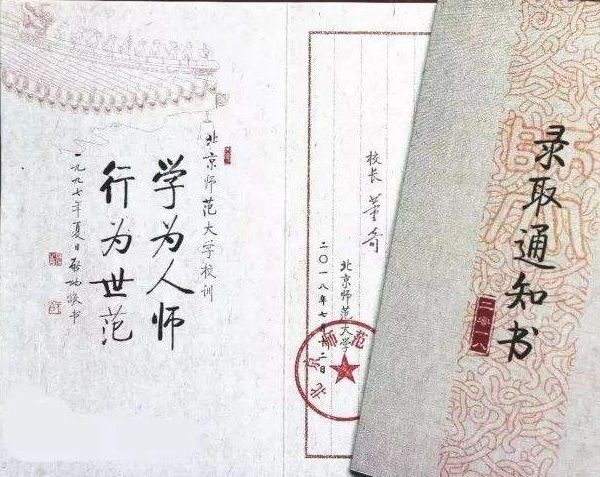 北京师范大学校训
学为人师
行为世范
一九九七年夏日启功敬书
校长 董奇
北京师范大学
二〇一八年七月二日
北京师范
录取通知书
二零一八